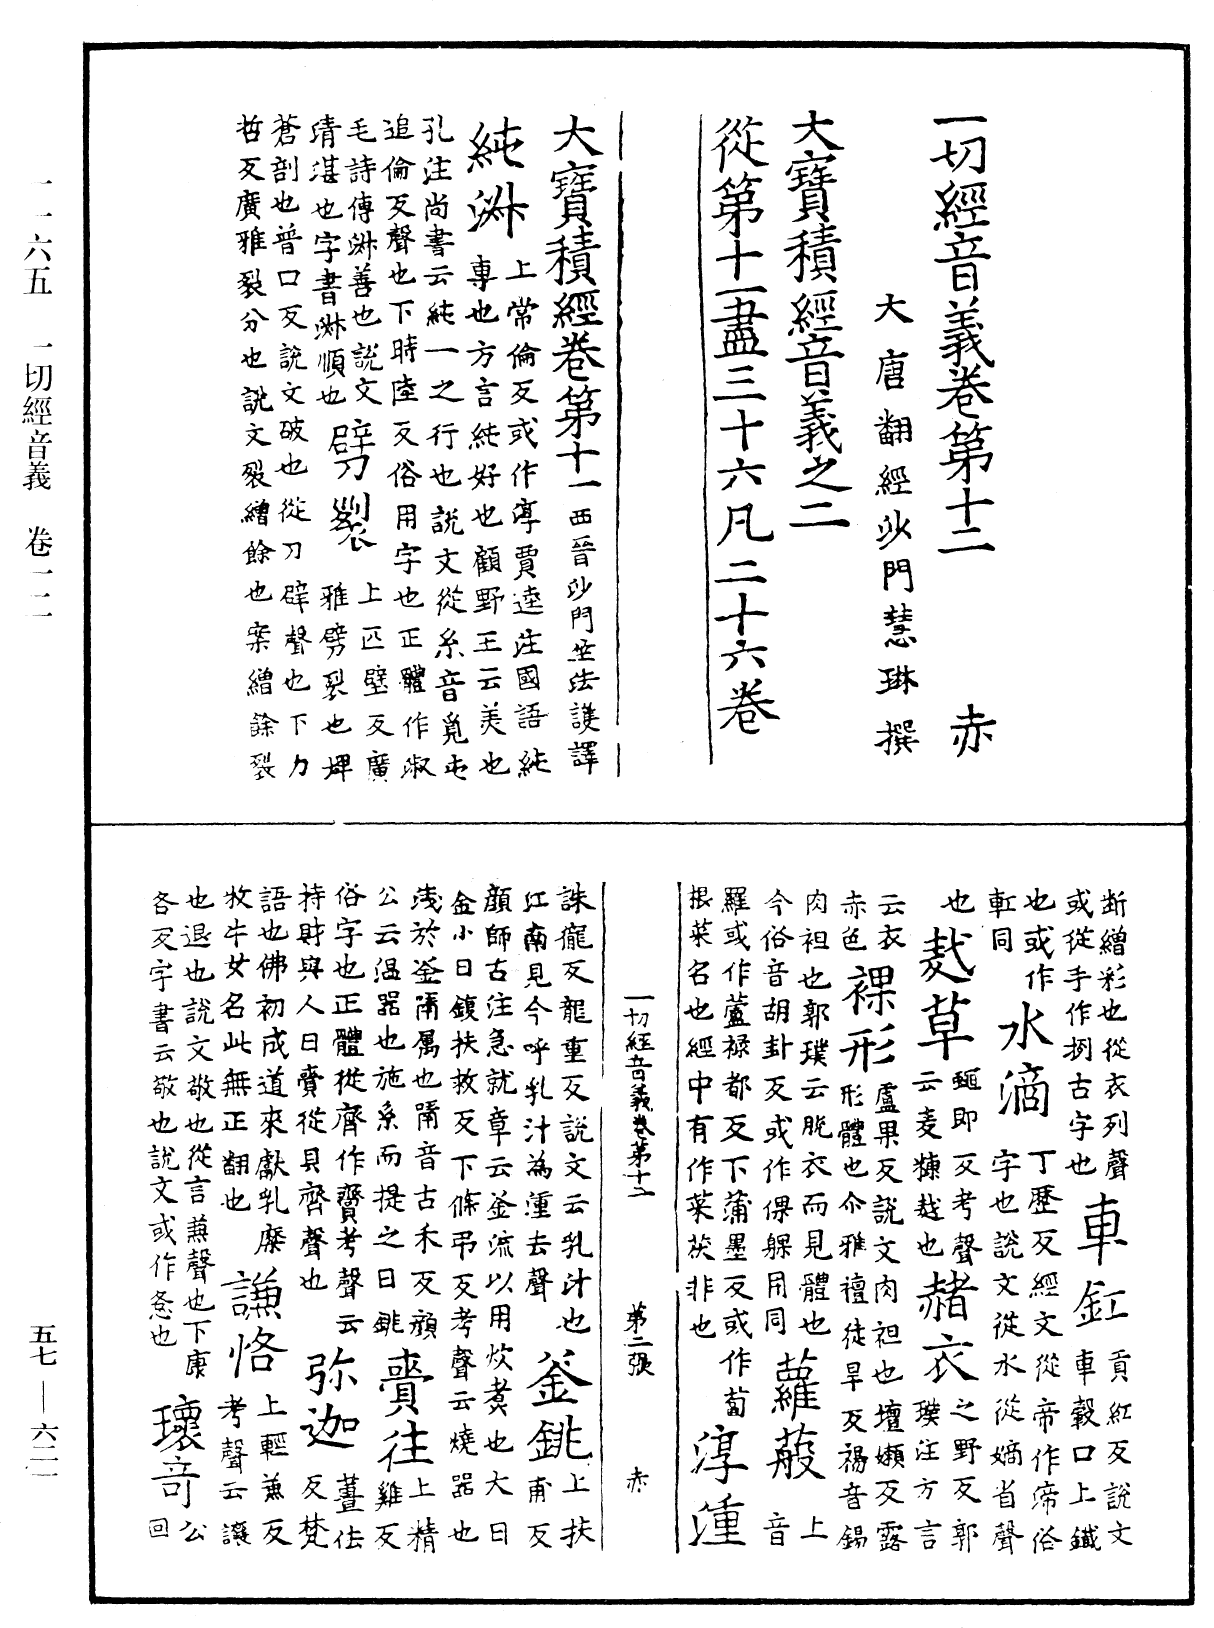 一切經音義卷第十二　赤
大唐翻經沙門慧琳撰
大寶積經音義之二
從第十一盡三十六凡二十六卷
大寶積經卷第十一 西晉沙門竺法護譯
純淋 上常倫反或作淳賈逵注國語純
專也方言純好也顧野王云美也
孔注尚書云純一之行也說文從糸音覓屯
追倫反聲也下時陸反俗用字也正體作淑
毛詩傳淋善也說文
清湛也字書淋順也 劈裂 上匹壁反廣
雅劈裂也埤
蒼剖也普口反說文破也從刀辟聲也下力
哲反廣雅裂分也說文裂繒餘也案繒餘裂
断繒彩也從衣列聲
或從手作挒古字也 車釭 貢紅反說文
車轂口上鐵
也或作
軖同 水滴 丁歷反經文從帝作渧俗
字也說文從水從嫡省聲
也 麩草 蠅即反考聲
云麦糠麩也 赭衣 之野反郭
璞注方言
云衣
赤色 裸形 盧果反說文肉袒也壇嬾反露
形體也尒雅襢徒旱反裼音錫
肉袒也郭璞云脫衣而見體也
今俗音胡卦反或作倮躶用同 蘿菔 上
音
羅或作蘆祿都反下蒲墨反或作蔔
根菜名也經中有作菜茯非也 淳湩
一切經音義卷第十二　第二張　赤
誅隴反龍重反說文云乳汁也
江南見今呼乳汁為湩去聲 釜銚 上扶
甫反
顏師古注急就章云釜流以用炊煑也大曰
釜小曰鍑扶救反下條弔反考聲云燒器也
淺於釜鬲属也鬲音古禾反顏
公云温器也施系而提之曰銚 賷往 上精
雞反
俗字也正體從齊作齎考聲云
持財與人曰賷從貝齊聲也 弥迦 薑佉
反梵
語也佛初成道來獻乳糜
牧牛女名此無正翻也 謙恪 上輕兼反
考聲云讓
也退也說文敬也從言兼聲也下康
各反字書云敬也說文或作愙也 瓌奇 公
回
一一六五　一切經音義　卷一二
五七—六二一